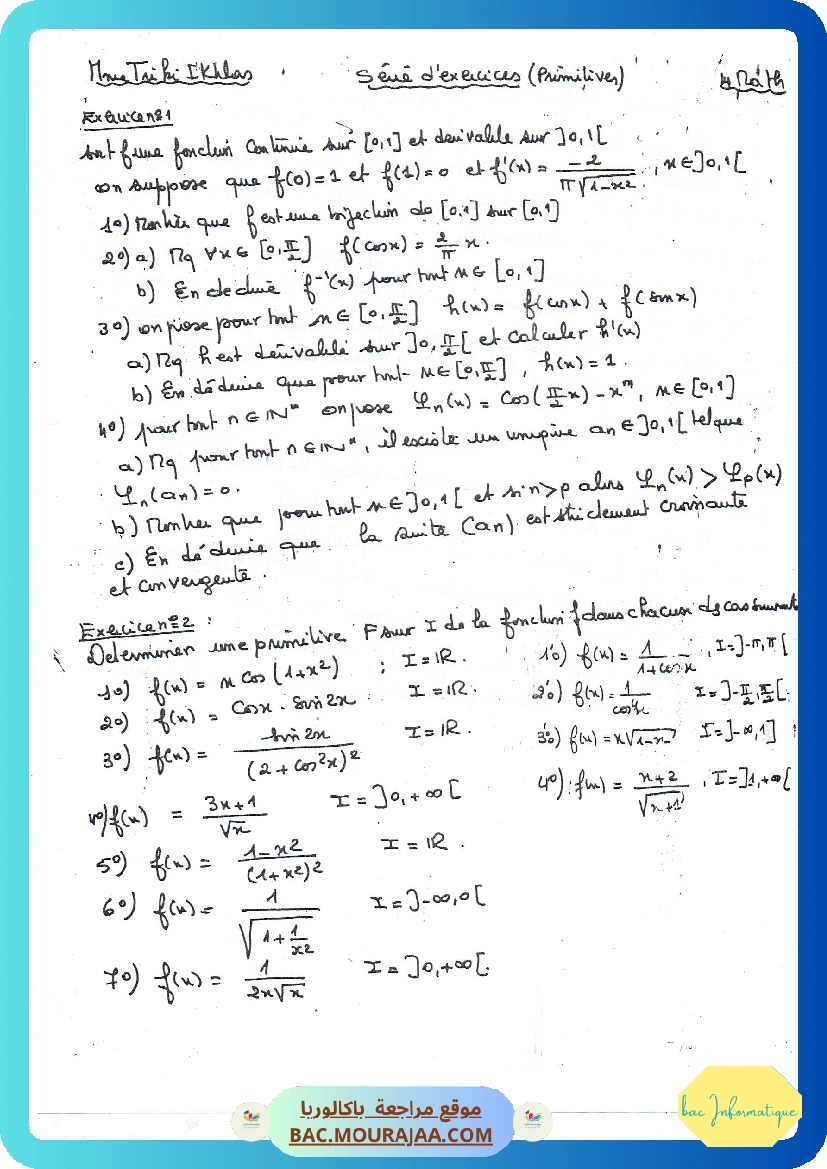 Mme Triki Ikhlas Série d'exercices (Primitives) 4 Math
Exercice n°1
Soit f une fonction continue sur [0,1] et dérivable sur ]0,1[
on suppose que f(0)=1 et f(1)=0 et f'(x) = -2/(π√(1-x²)), x∈]0,1[
1°) Montrer que f est une bijection de [0,1] sur [0,1]
2°) a) Mq ∀x∈[0,π/2] f(cosx) = 2/π x.
b) En déduire f⁻¹(x) pour tout x∈[0,1]
3°) on pose pour tout x∈[0,π/2] h(x) = f(cosx) + f(sinx)
a) Mq h est dérivable sur ]0,π/2[ et calculer h'(x)
b) En déduire que pour tout x∈[0,π/2], h(x) = 1.
4°) pour tout n∈ℕ* on pose φn(x) = cos(π/2 x) - xⁿ, x∈[0,1]
a) Mq pour tout n∈ℕ*, il existe un unique an∈]0,1[ tel que
φn(an) = 0.
b) Montrer que pour tout x∈]0,1[ et si n>p alors φn(x) > φp(x)
c) En déduire que la suite (an) est strictement croissante
et convergente.
Exercice n°2 :
Determiner une primitive F sur I de la fonction f dans chacun des cas suivants
1°) f(x) = x cos(1+x²) ; I = ℝ.
2°) f(x) = cosx . sin2x I = ℝ.
3°) f(x) = sin2x/(2+cos²x)² I = ℝ.
4°) f(x) = (3x+1)/√x I = ]0,+∞[
5°) f(x) = (1-x²)/(1+x²)² I = ℝ.
6°) f(x) = 1/√(1+1/x²) I = ]-∞,0[
7°) f(x) = 1/(2x√x) I = ]0,+∞[.
1'°) f(x) = 1/(1+cosx), I = ]-π,π[
2'°) f(x) = 1/cos⁴x I = ]-π/2,π/2[
3'°) f(x) = x√(1-x) I = ]-∞,1]
4°) f(x) = (x+2)/√(x+1), I = ]1,+∞[
موقع مراجعة باكالوريا
BAC.MOURAJAA.COM
bac Informatique